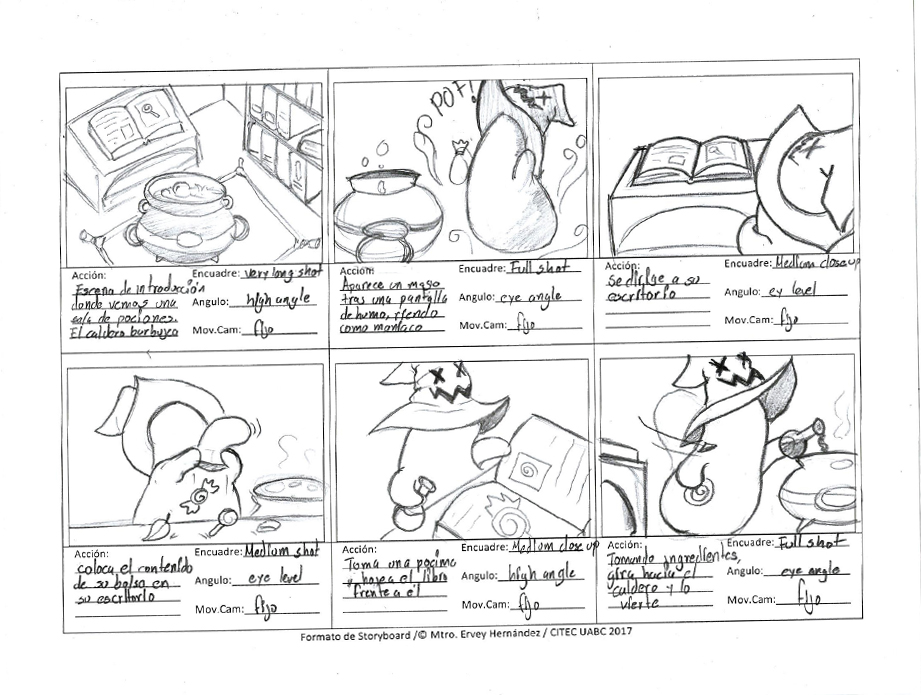 POF!
Acción:
Escena de introducción
donde vemos una
sala de pociones.
El caldero burbujea
Encuadre: very long shot
Angulo: high angle
Mov.Cam: fijo
Acción:
Aparece un mago
tras una pantalla
de humo, riendo
como maniaco
Encuadre: Full shot
Angulo: eye angle
Mov.Cam: fijo
Acción:
se dirige a su
escritorio
Encuadre: Medium close up
Angulo: ey level
Mov.Cam: fijo
Acción:
coloca el contenido
de su bolso en
su escritorio
Encuadre: Medium shot
Angulo: eye level
Mov.Cam: fijo
Acción:
Toma una pocima
y hojea el libro
frente a él
Encuadre: Medium close up
Angulo: high angle
Mov.Cam: fijo
Acción:
Tomando ingredientes,
gira hacia el
caldero y lo
vierte
Encuadre: Full shot
Angulo: eye angle
Mov.Cam: fijo
Formato de Storyboard /© Mtro. Ervey Hernández / CITEC UABC 2017